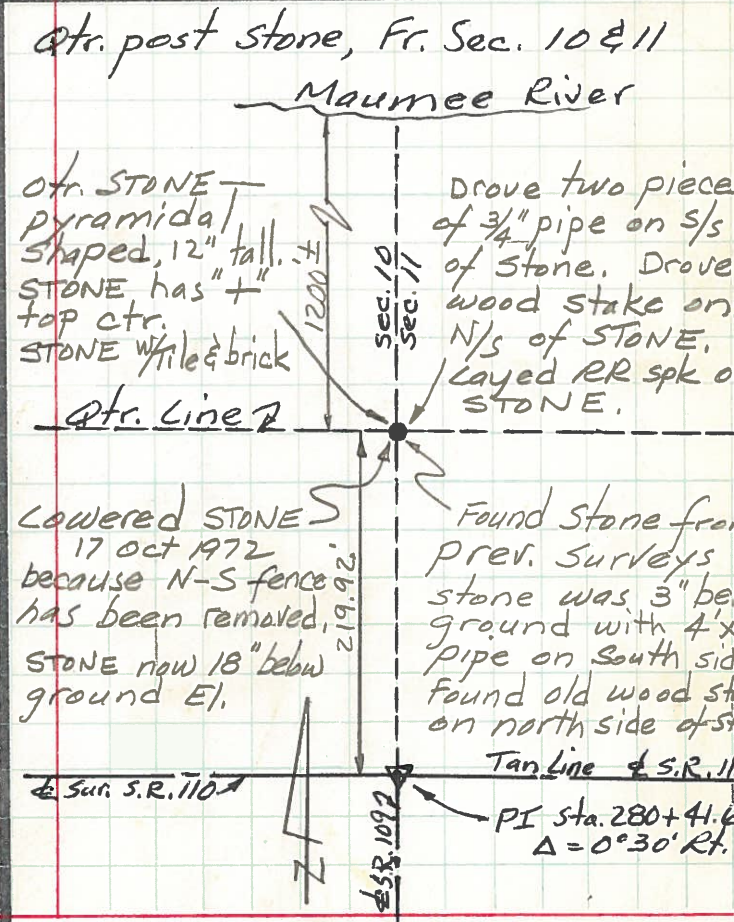 Qtr. post stone, Fr. Sec. 10 & 11
Maumee River
Qtr. STONE —
pyramidal
shaped, 12" tall.
STONE has "+"
top ctr.
STONE w/tile & brick
1200'±
sec. 10
sec. 11
Drove two piece
of 3/4" pipe on S/s
of Stone. Drove
wood stake on
N/s of STONE.
Layed RR spk o
STONE.
Qtr. Line
Lowered STONE
17 Oct 1972
because N-S fence
has been removed.
STONE now 18" below
ground El.
219.92'
Found Stone from
Prev. Surveys
stone was 3" be
ground with 4'x
pipe on South sid
Found old wood st
on north side of st
Tan Line ℄ S.R. 11
℄ Sur. S.R. 110
℄ S.R. 109
PI Sta. 280+41.6
Δ = 0°30' Rt.
N